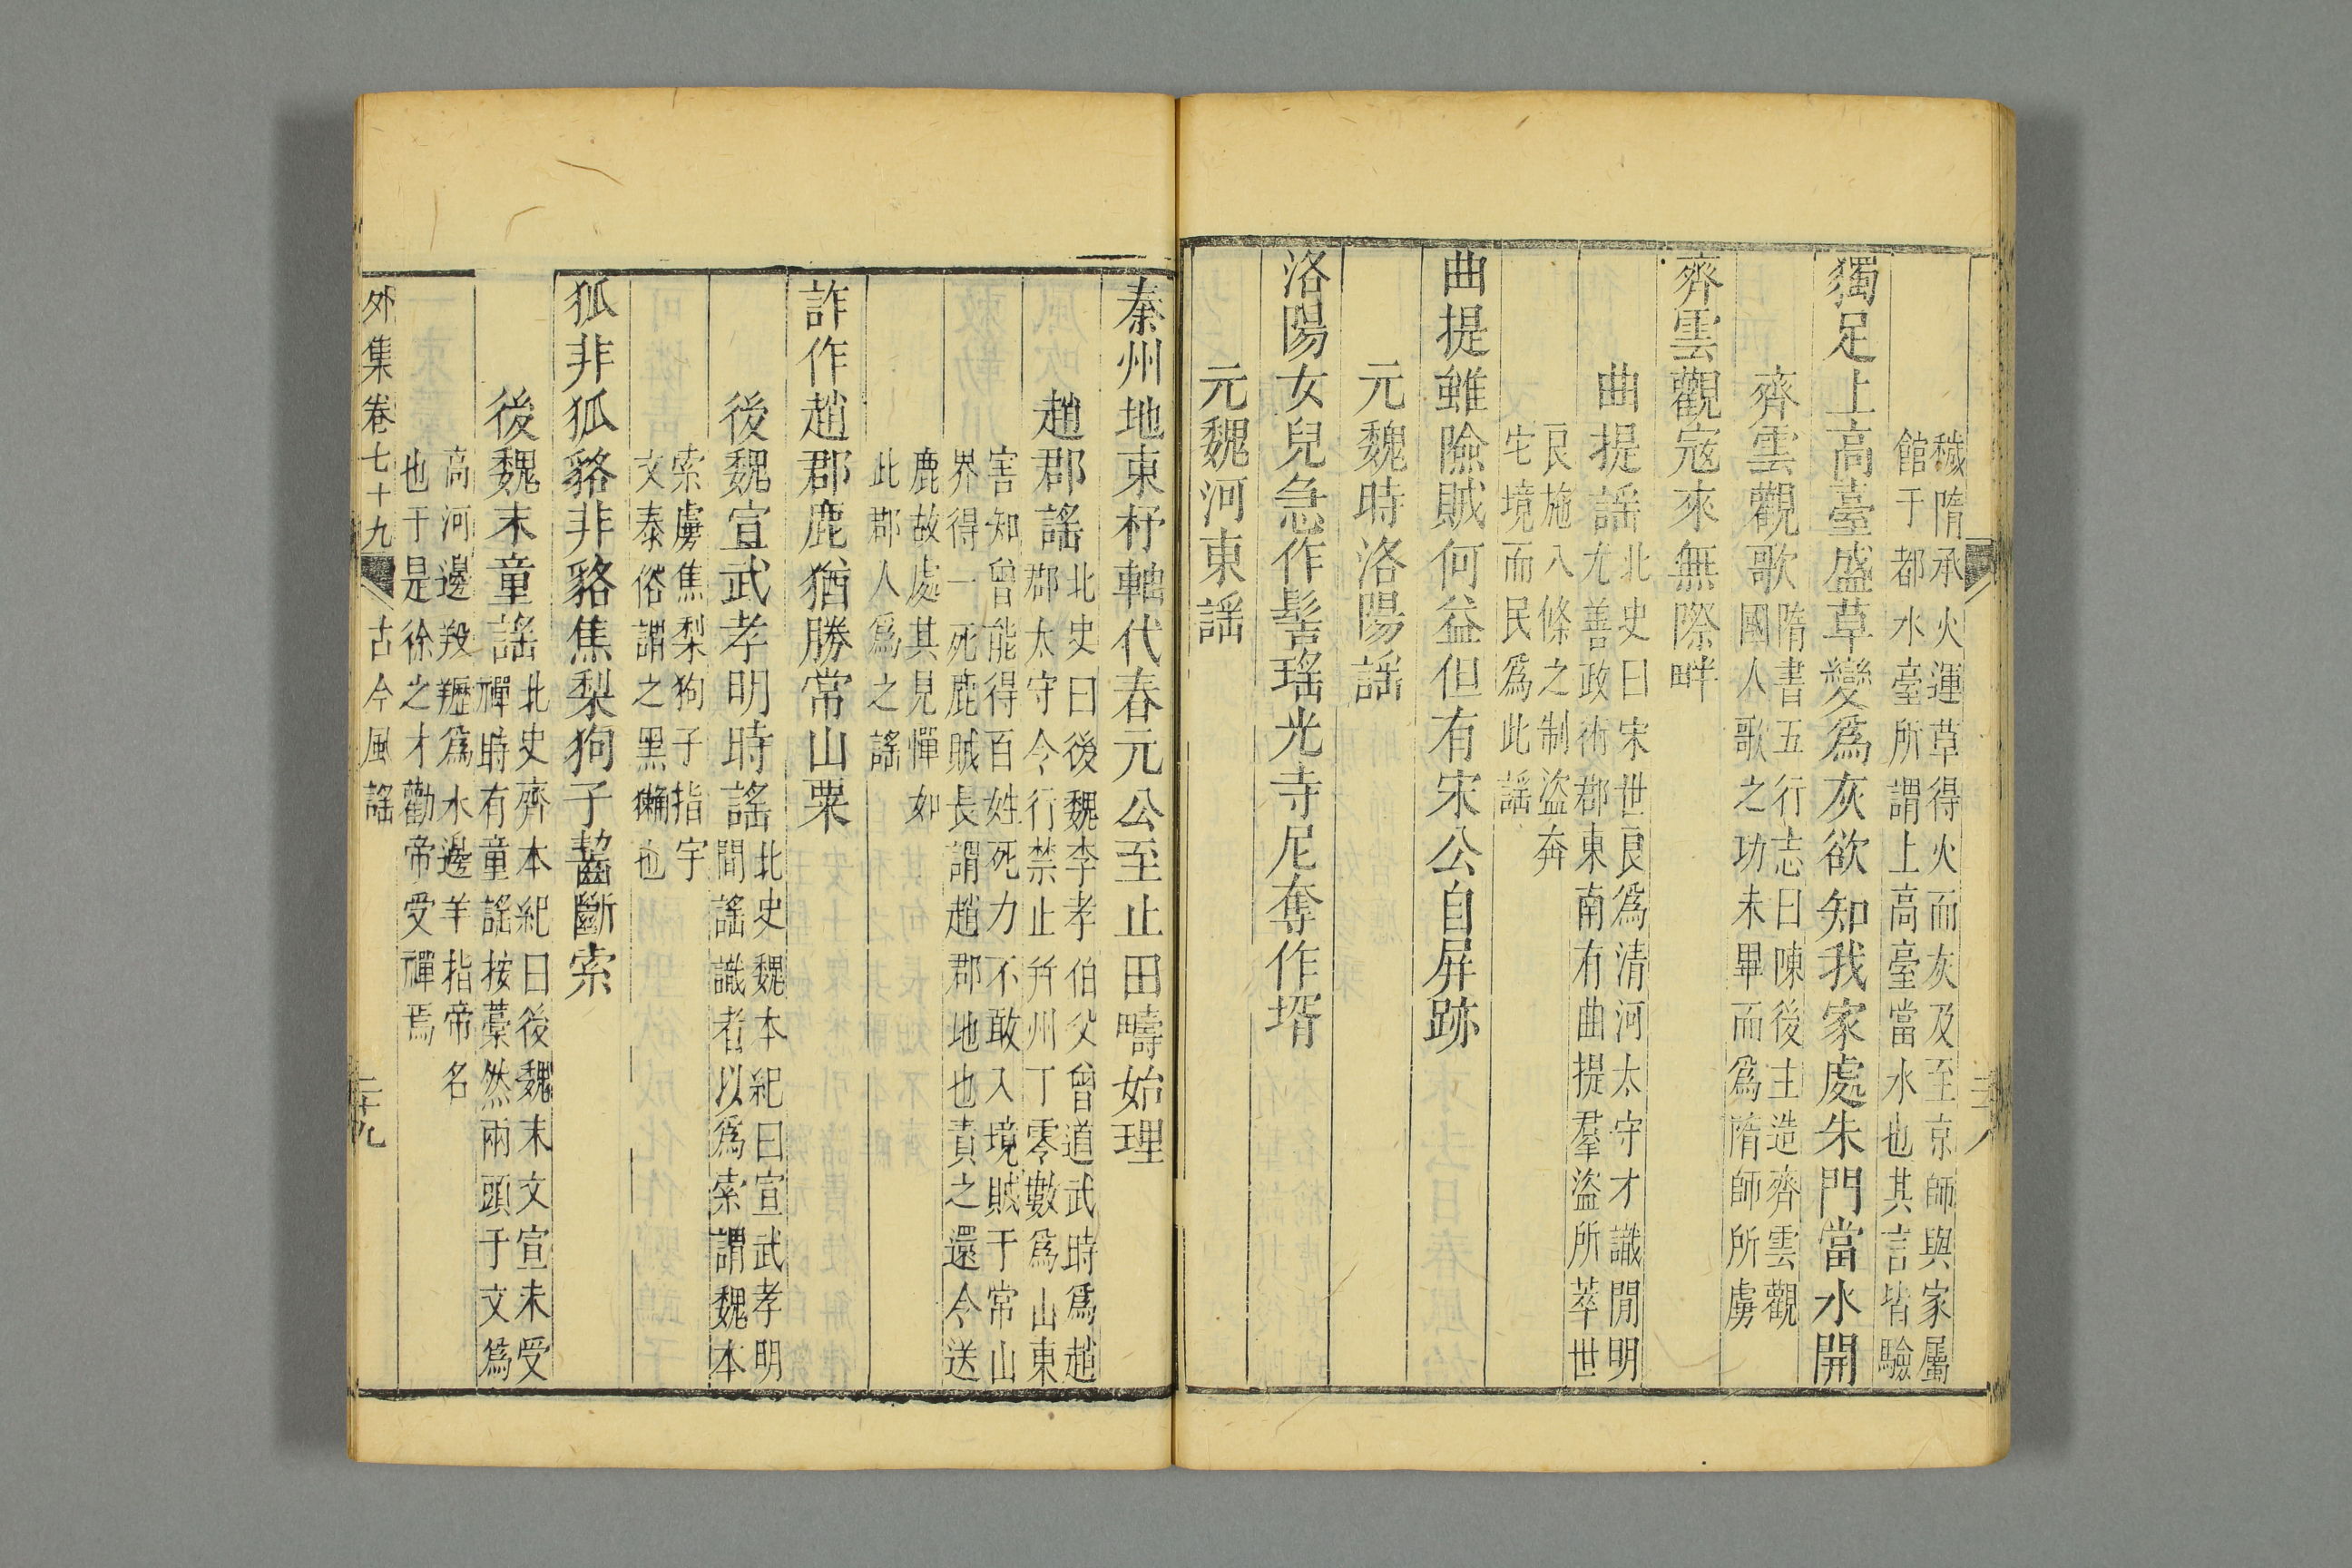 穢隋承火運草得火而灰及至京師與家屬
館于都水臺所謂上高臺當水也其言皆驗
獨足上高臺盛草變爲灰欲知我家處朱門當水開
齊雲觀歌
隋書五行志曰陳後主造齊雲觀
國人歌之功未畢而爲隋師所虜
齊雲觀寇來無際畔
曲提謠
北史曰宋世良爲清河太守才識閒明
尤善政術郡東南有曲提羣盜所萃世
良施八條之制盜奔
宅境而民爲此謠
曲提雖險賊何益但有宋公自屏跡
元魏時洛陽謠
洛陽女兒急作髻瑤光寺尼奪作壻
元魏河東謠
秦州地東杼軸代春元公至止田疇始理
趙郡謠
北史曰後魏李孝伯父曾道武時爲趙
郡太守令行禁止并州丁零數爲山東
害知曾能得百姓死力不敢入境賊于常山
界得一死鹿賊長謂趙郡地也責之還令送
鹿故處其見憚如
此郡人爲之謠
詐作趙郡鹿猶勝常山粟
後魏宣武孝明時謠
北史魏本紀曰宣武孝明
間謠識者以爲索謂魏本
索虜焦梨狗子指宇
文泰俗謂之黑獺也
狐非狐貉非貉焦梨狗子齧斷索
後魏末童謠
北史齊本紀曰後魏末文宣未受
禪時有童謠按藁然兩頭于文爲
高河邊羖䍽爲水邊羊指帝名
也于是徐之才勸帝受禪焉
外集卷七十九 古今風謠 二十九